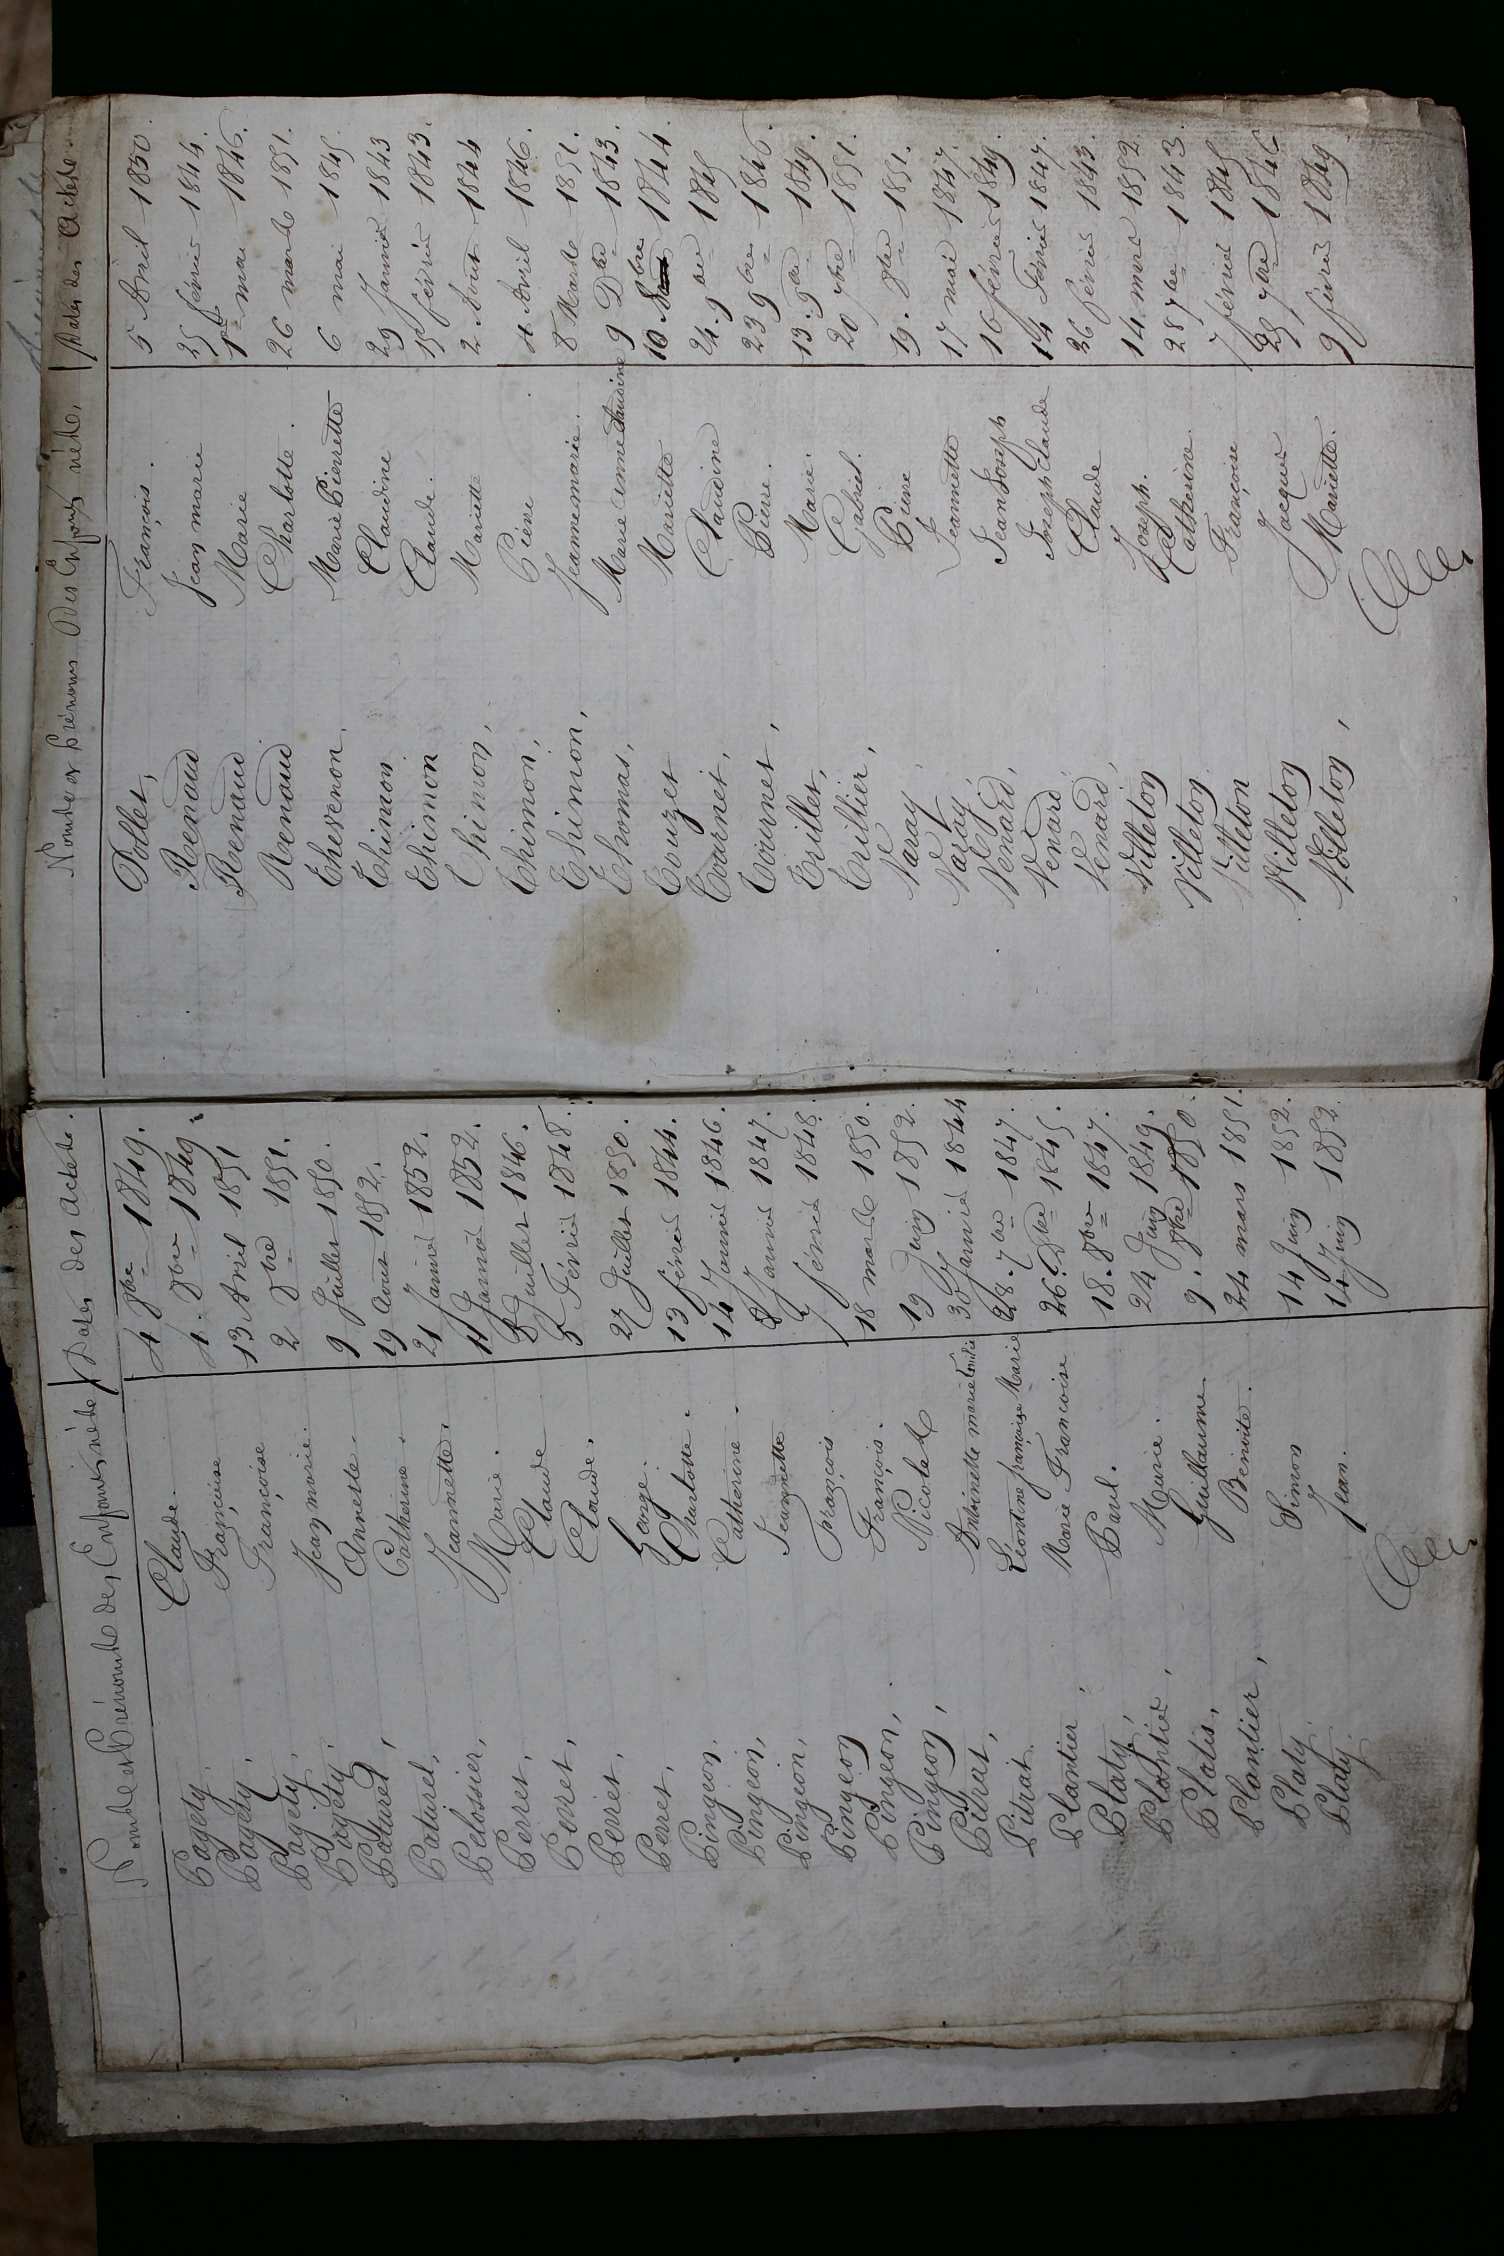 Noms et Prénoms des Enfants nés. Dates des Actes.
Pagety, Claude. 4 8bre 1849.
Pagety, Françoise 4. 8bre 1849.
Pagety, Françoise 13 Avril 1851
Pagety, Jean marie. 2 8bre 1851.
Paturel, Annette. 9 Juillet 1850.
Paturel, Catherine. 19 Aout 1852.
Pelossier, Jeannette. 21 Janvier 1852.
Perret, Marie. 11 Janvier 1852.
Perret, Claude 8 Juillet 1846.
Perret, Claude. 5 Février 1848.
Perret, 27 Juillet 1850.
Pingeon. Charlotte. 13 février 1844.
Pingeon, Catherine. 14 Janvier 1846.
Pingeon, Jeannette 8 Janvier 1847.
Pingeon François 7 février 1848.
Pingeon, François. 18 mars 1850.
Pingeon, Nicolas 19 Juin 1852.
Pitrat, Antoinette marie 30 Janvier 1844
Pitrat. Léontine françoise Marie 28. 7bre 1847.
Plantier, Marie Francoise 26. 1845.
Platy, Paul. 18. 8bre 1847.
Plantier, Marie. 24 Juin 1849.
Platis, Guillaume. 9. 8bre 1850.
Plantier, Benoite. 24 mars 1851.
Platy, Simon 14 Juin 1852.
Platy. Jean. 14 Juin 1852.
Noms et Prénoms des Enfants nés. Dates des Actes.
Pollet, François. 5 Avril 1850.
Renaud Jean marie 25 février 1844.
Renaud Marie 1er mai 1846.
Renaud Charlotte. 26 mars 1851.
Thevenon, Marie Pierrette 6 mai 1845.
Thimon Claudine 29 Janvier 1843
Thimon Claude. 15 février 1843.
Thimon, Mariette 2. Aout 1844
Thimon, Pierre 4 Avril 1846.
Thimon, Jeanne marie. 8 Mars 1851.
Thomas, Marie Anne Claudine 9 Dbre 1843.
Touzet Mariette 10 bre 1844.
Tournet, Claudine 24. 9bre 1845
Tournet, Pierre. 23 9bre 1846.
Trillet, Marie. 13. 9bre 1849.
Trillier, Gabriel. 20 7bre 1851.
Varay, Pierre 19. 8bre 1851.
Varay, Jeannette 17 mai 1847.
Venard, Jean Joseph 16 février 1849.
Venard, Joseph Claude 14 Février 1847.
Venard, Claude 26 février 1843.
Villeton Joseph. 14 mars 1852.
Villeton Catherine. 28 7bre 1843.
Villeton Françoise 7 février 1845
Villeton Jacques 25 7bre 1846
Villeton, Mariette. 9 février 1849.